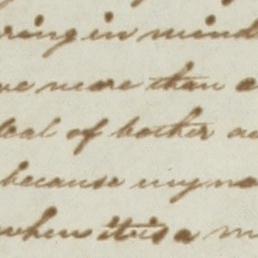 ring in mind
ve more than a
deal of bother a
because my no
when it is a m